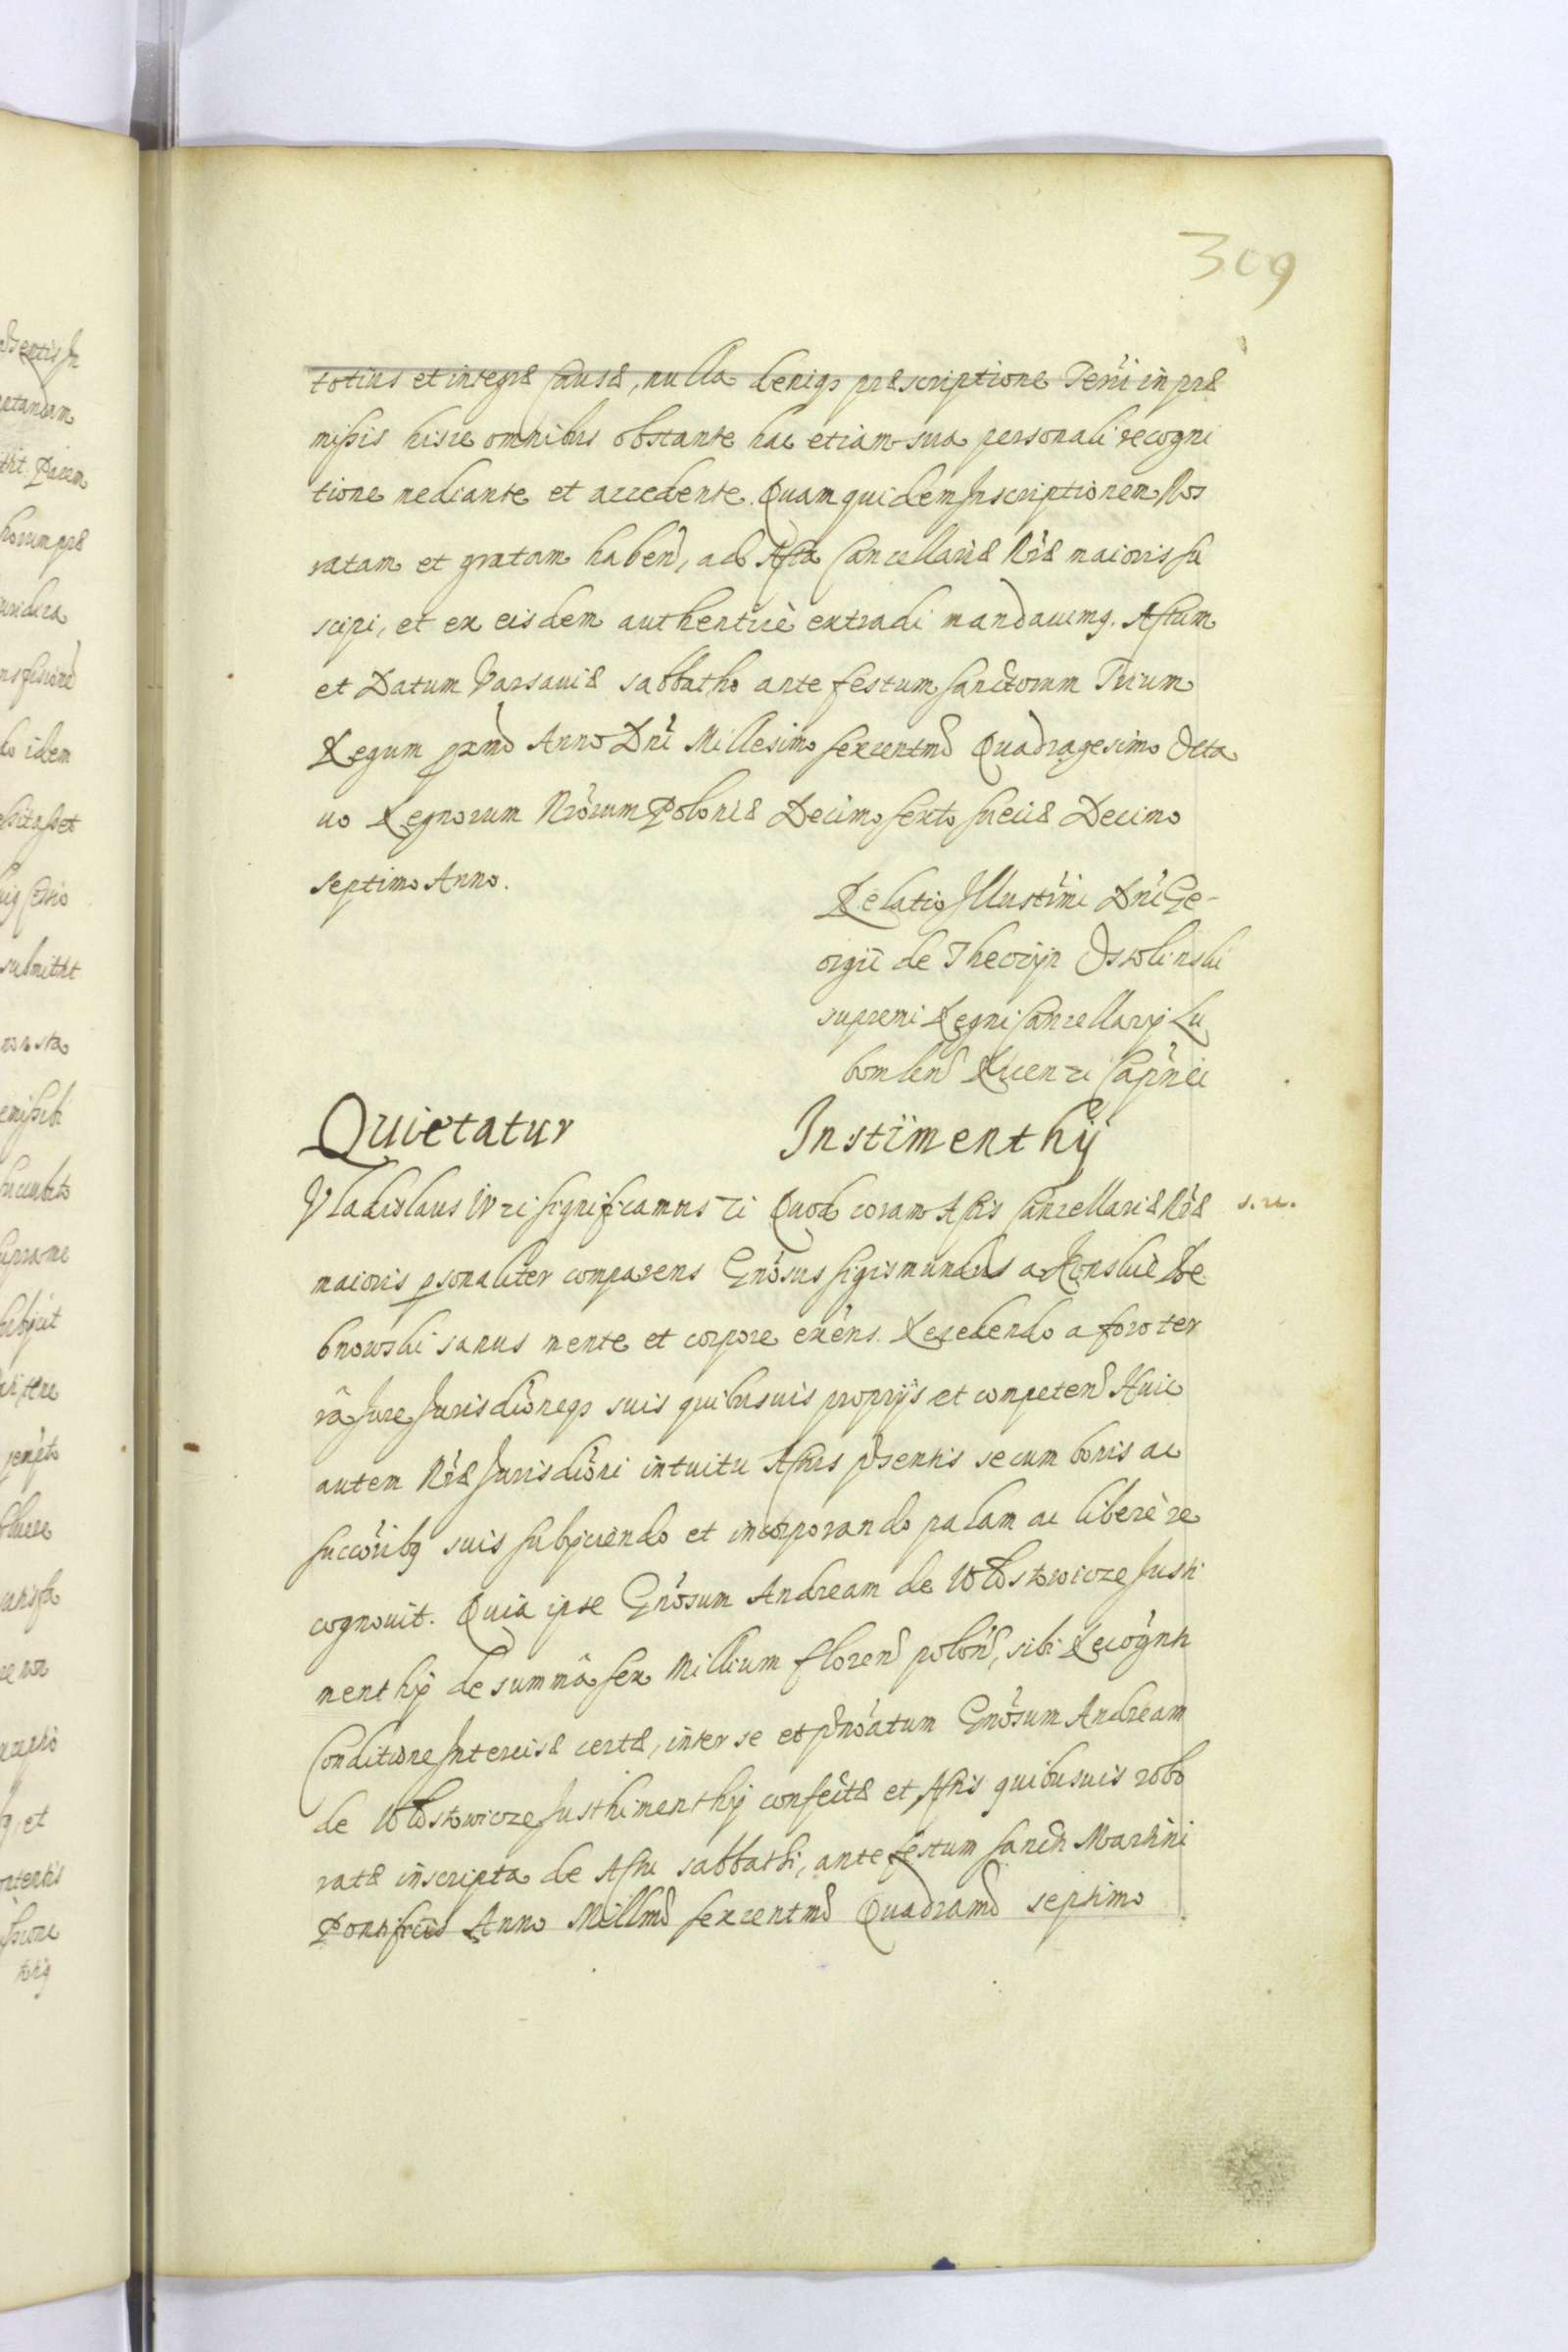 309
totius et integræ causæ, nulla deniqꝫ præscriptione Terrī in præ
missis hisce omnibus obstante hac etiam sua personali recogni
tione mediante et accedente. Quam quidem Inscriptionem Nos
ratam et gratam habeñ, ad Acta Cancellariæ Nræ maioris su
scipi, et ex eisdem authenticè extradi mandauimꝰ. Actum
et Datum Varsauiæ sabbatho ante festum sanctorum Trium
Regum pxmo Anno Dni Millesimo sexcentmo Quadragesimo Octa
uo Regnorum Nrorum Poloniæ Decimo sexto sueciæ Decimo
septimo Anno.
Relatio Illustrmi Dni Ge-
orgii de Theczyn Ossolinski
supremi Regni Cancellarij Lu
bomlen Ricen zc Capnei
Quietatur Instimenthÿ
Vladislaus IV zc significamus zc Quod coram Actis Cancellariæ Nræ s.u.
maioris psonaliter comparens Gnosus sigismundus a Konskie De
bnowski sanus mente et corpore exens. Recedendo a foro ter
râ Jure Jurisdioneqꝫ suis quibusuis proprijs et competen Huic
autem Nræ Jurisdioni intuitu Actus psentis se cum bonis ac
succoribꝰ suis subijciendo et incorporando palam ac liberè re
cognouit. Quia ipse Gnosum Andream de Wlostowicze Justi
menthÿ de summâ sex Millium floren polon, sibi Recognit
Conditione Intercisæ certæ, inter se et pnoatum Gnosum Andream
de Wlostowicze Justhimenthÿ confectæ et Actis quibusuis robo
ratæ inscripta de Actu sabbathi, ante festum sancti Martini
Pontificis Anno Millmo sexcentmo Quadramo septimo